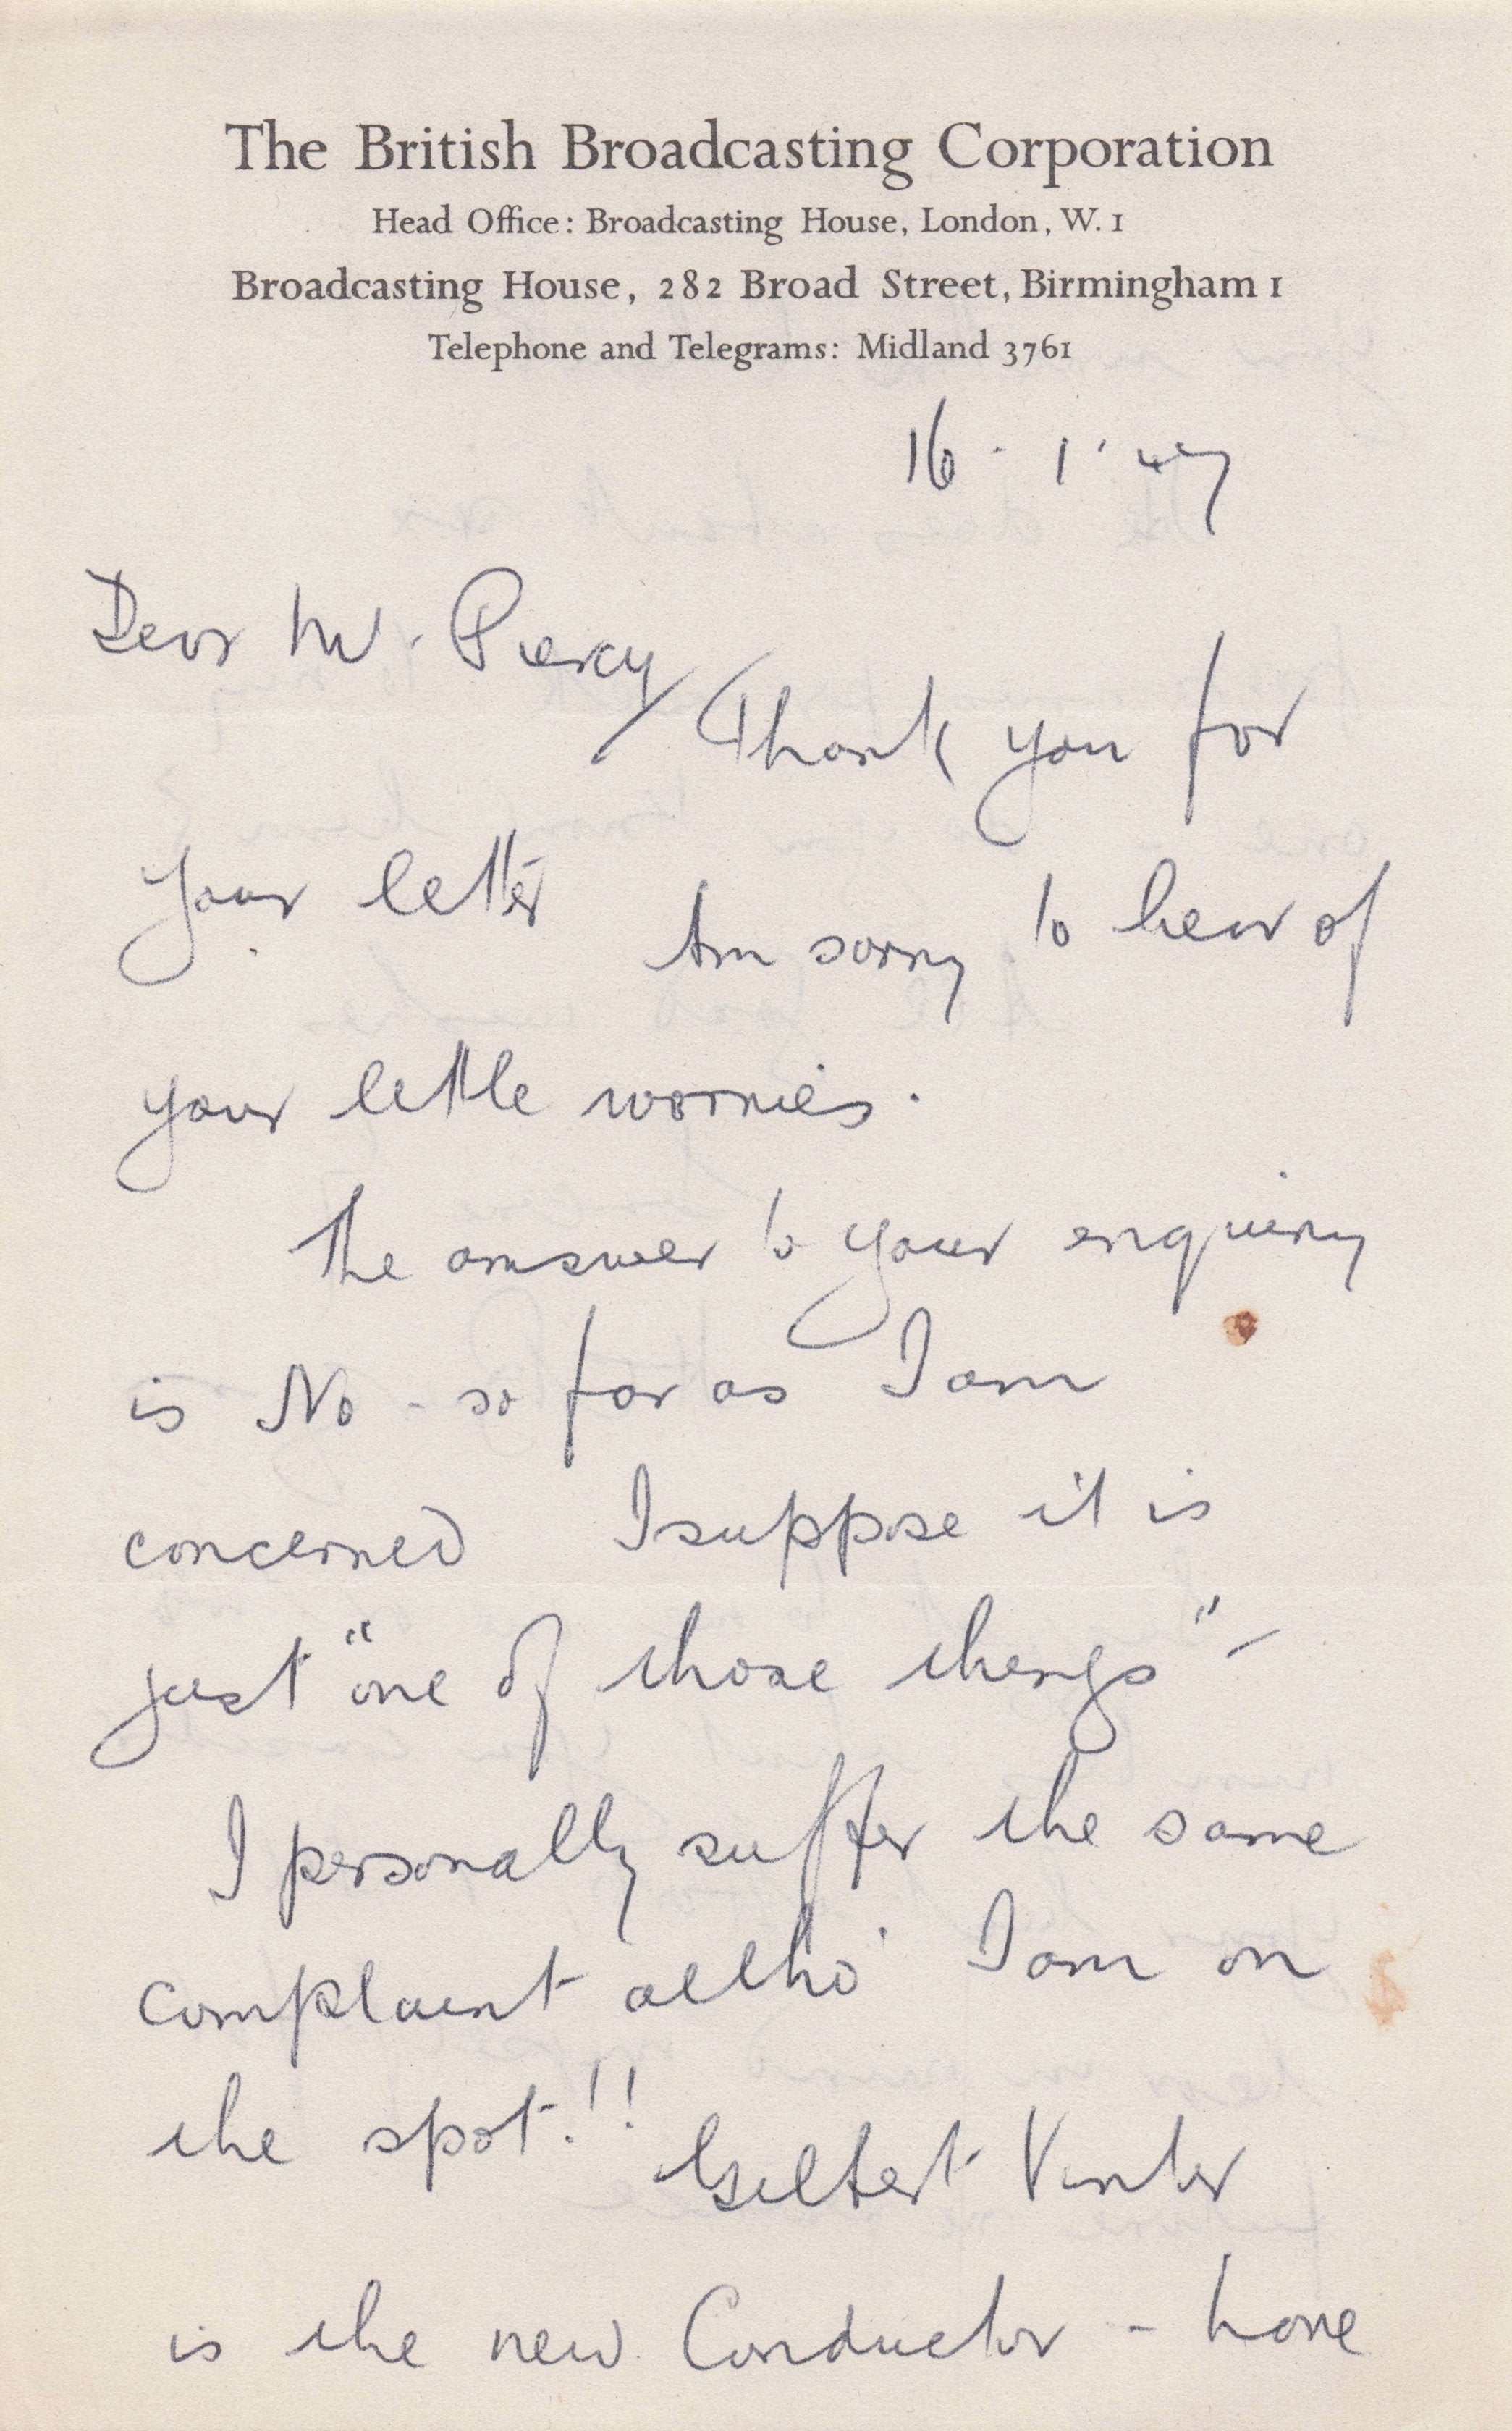 The British Broadcasting Corporation
Head Office: Broadcasting House, London, W. 1
Broadcasting House, 282 Broad Street, Birmingham 1
Telephone and Telegrams: Midland 3761
16 - 1 · 47
Dear Mr. Piercy
Thank you for
your letter Am sorry to hear of
your little worries.
The answer to your enquiry
is No - so far as I am
concerned I suppose it is
just "one of those things" -
I personally suffer the same
complaint altho' I am on
the spot!! Gilbert Vinter
is the new Conductor - have